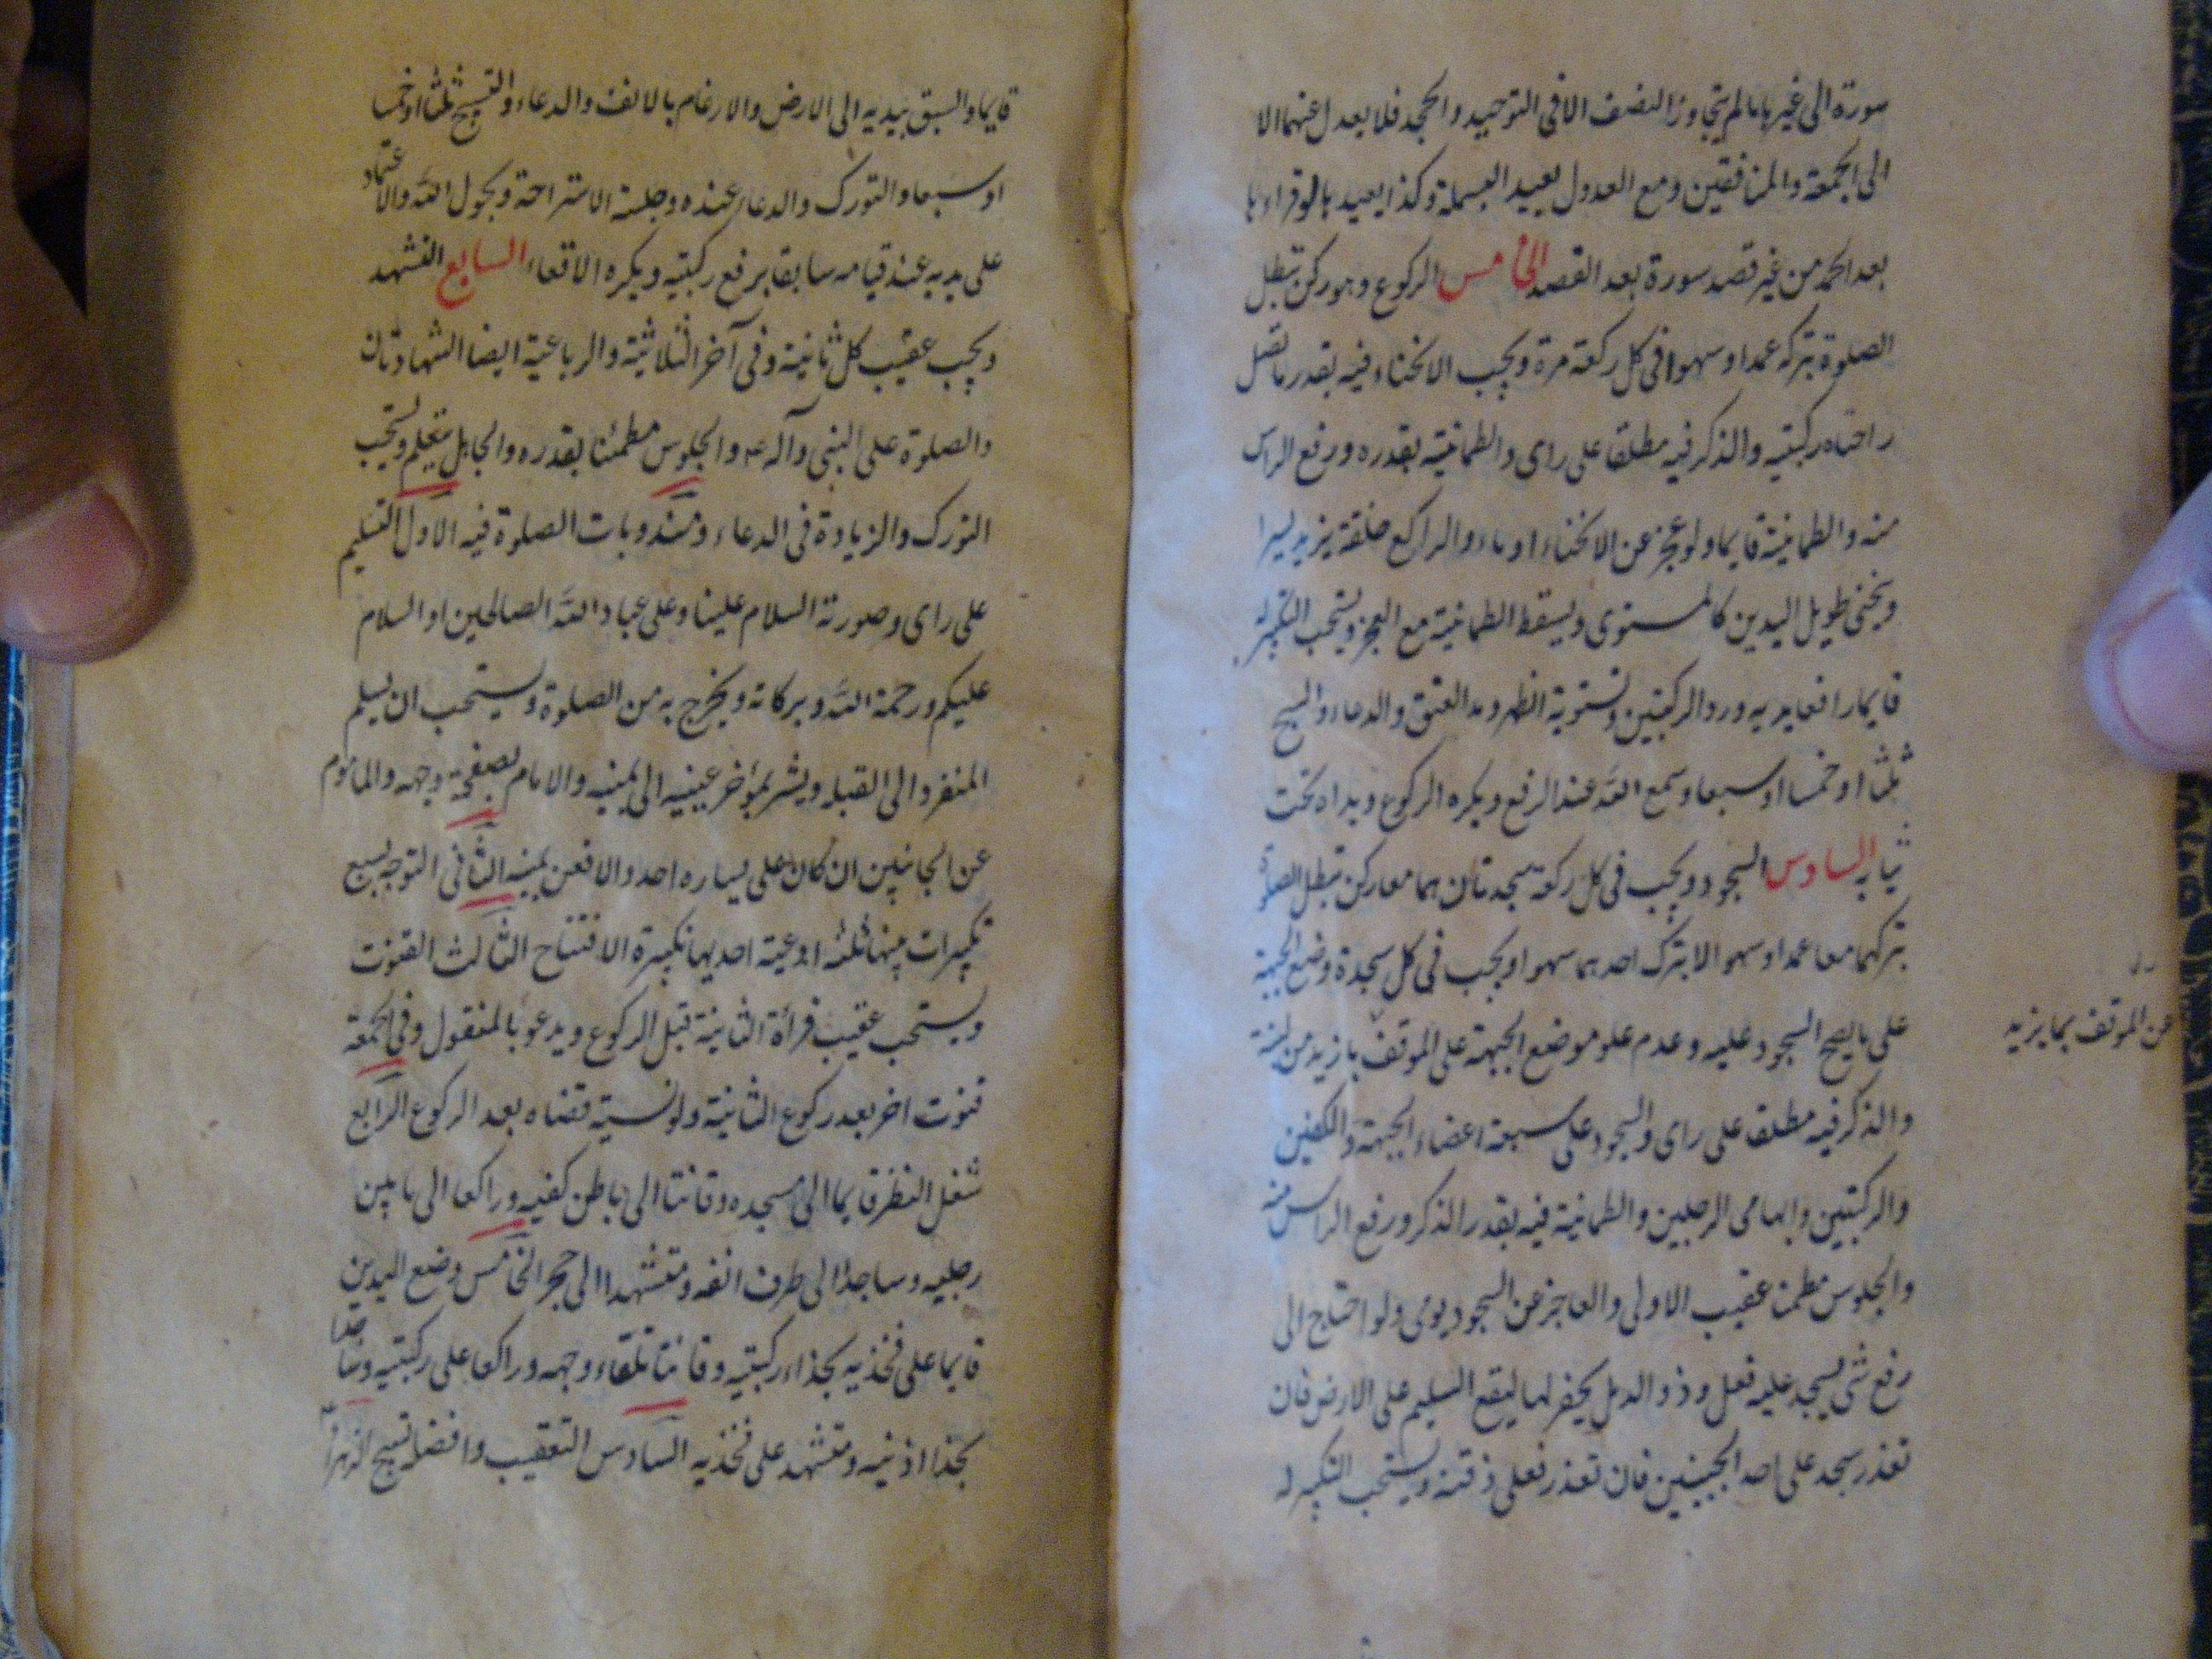 سورة الى غيرها ما لم يتجاوز النصف الا فى التوحيد والجحد فلا يعدل عنهما الا
الى الجمعة والمنافقين ومع العدول يعيد البسملة وكذا يعيدها لو قراها
بعد الحمد من غير قصد سورة بعد القصد الخامس الركوع وهو ركن تبطل
الصلوة بتركه عمدا وسهوا فى كل ركعة مرة ويجب الانحناء فيه بقدر ما تصل
راحتاه ركبتيه والذكر فيه مطلقا على راى والطمانينة بقدره ورفع الراس
منه والطمانينة قايما ولو عجز عن الانحناء اوماء والراكع خلقة يزيد يسيرا
وينحنى طويل اليدين كالمستوى ويسقط الطمانينة مع العجز ويستحب التكبير له
قايما رافعا يديه ورد الركبتين وتسوية الظهر ومد العنق والدعاء والتسبيح
ثلثا او خمسا او سبعا وسمع الله عند الرفع ويكره الركوع ويداه تحت
ثيابه السادس السجود ويجب فى كل ركعة سجدتان هما معا ركن تبطل الصلوة
بتركهما معا عمدا وسهوا لا بترك احدهما سهوا ويجب فى كل سجدة وضع الجبهة
على ما يصح السجود عليه وعدم علو موضع الجبهة على الموقف بازيد من لبنة
عن الموقف بما يزيد
والذكر فيه مطلقا على راى والسجود على سبعة اعضاء الجبهة والكفين
والركبتين وابهامى الرجلين والطمانينة فيه بقدر الذكر ورفع الراس منه
والجلوس مطمئنا عقيب الاولى والعاجز عن السجود يومى ولو احتاج الى
رفع شى يسجد عليه فعل وذو الدمل يحفر لها ليقع السليم على الارض فان
تعذر سجد على احد الجبينين فان تعذر فعلى ذقنه ويستحب التكبير له
قايما والسبق بيديه الى الارض والارغام بالانف والدعاء والتسبيح ثلثا او خمسا
او سبعا والتورك والدعاء عنده وجلسة الاستراحة وبحول الله والاعتماد
على يديه عند قيامه سابقا برفع ركبتيه ويكره الاقعاء السابع التشهد
ويجب عقيب كل ثانية وفى آخر الثلاثية والرباعية ايضا الشهادتان
والصلوة على النبى وآله ع والجلوس مطمئنا بقدره والجاهل يتعلم ويستحب
التورك والزيادة فى الدعاء ومندوبات الصلوة فيه الاول التسليم
على راى وصورته السلام علينا وعلى عباد الله الصالحين او السلام
عليكم ورحمة الله وبركاته ويخرج به من الصلوة ويستحب ان يسلم
المنفرد الى القبلة ويشير بمؤخر عينيه الى يمينه والامام بصفحة وجهه والماموم
عن الجانبين ان كان على يساره احد والا فعن يمينه الثانى التوجه بسبع
تكبيرات بينها ثلثة ادعية احديها تكبيرة الافتتاح الثالث القنوت
ويستحب عقيب قرأة الثانية قبل الركوع ويدعو بالمنقول وفى الجمعة
قنوت اخر بعد ركوع الثانية ولو نسيه قضاه بعد الركوع الرابع
شغل النظر قايما الى مسجده وقانتا الى باطن كفيه وراكعا الى ما بين
رجليه وساجدا الى طرف انفه ومتشهدا الى حجره الخامس وضع اليدين
قايما على فخذيه بحذاء ركبتيه وقانتا تلقاء وجهه وراكعا على ركبتيه وساجدا
بحذا اذنيه ومتشهدا على فخذيه السادس التعقيب وافضله تسبيح الزهرا ع